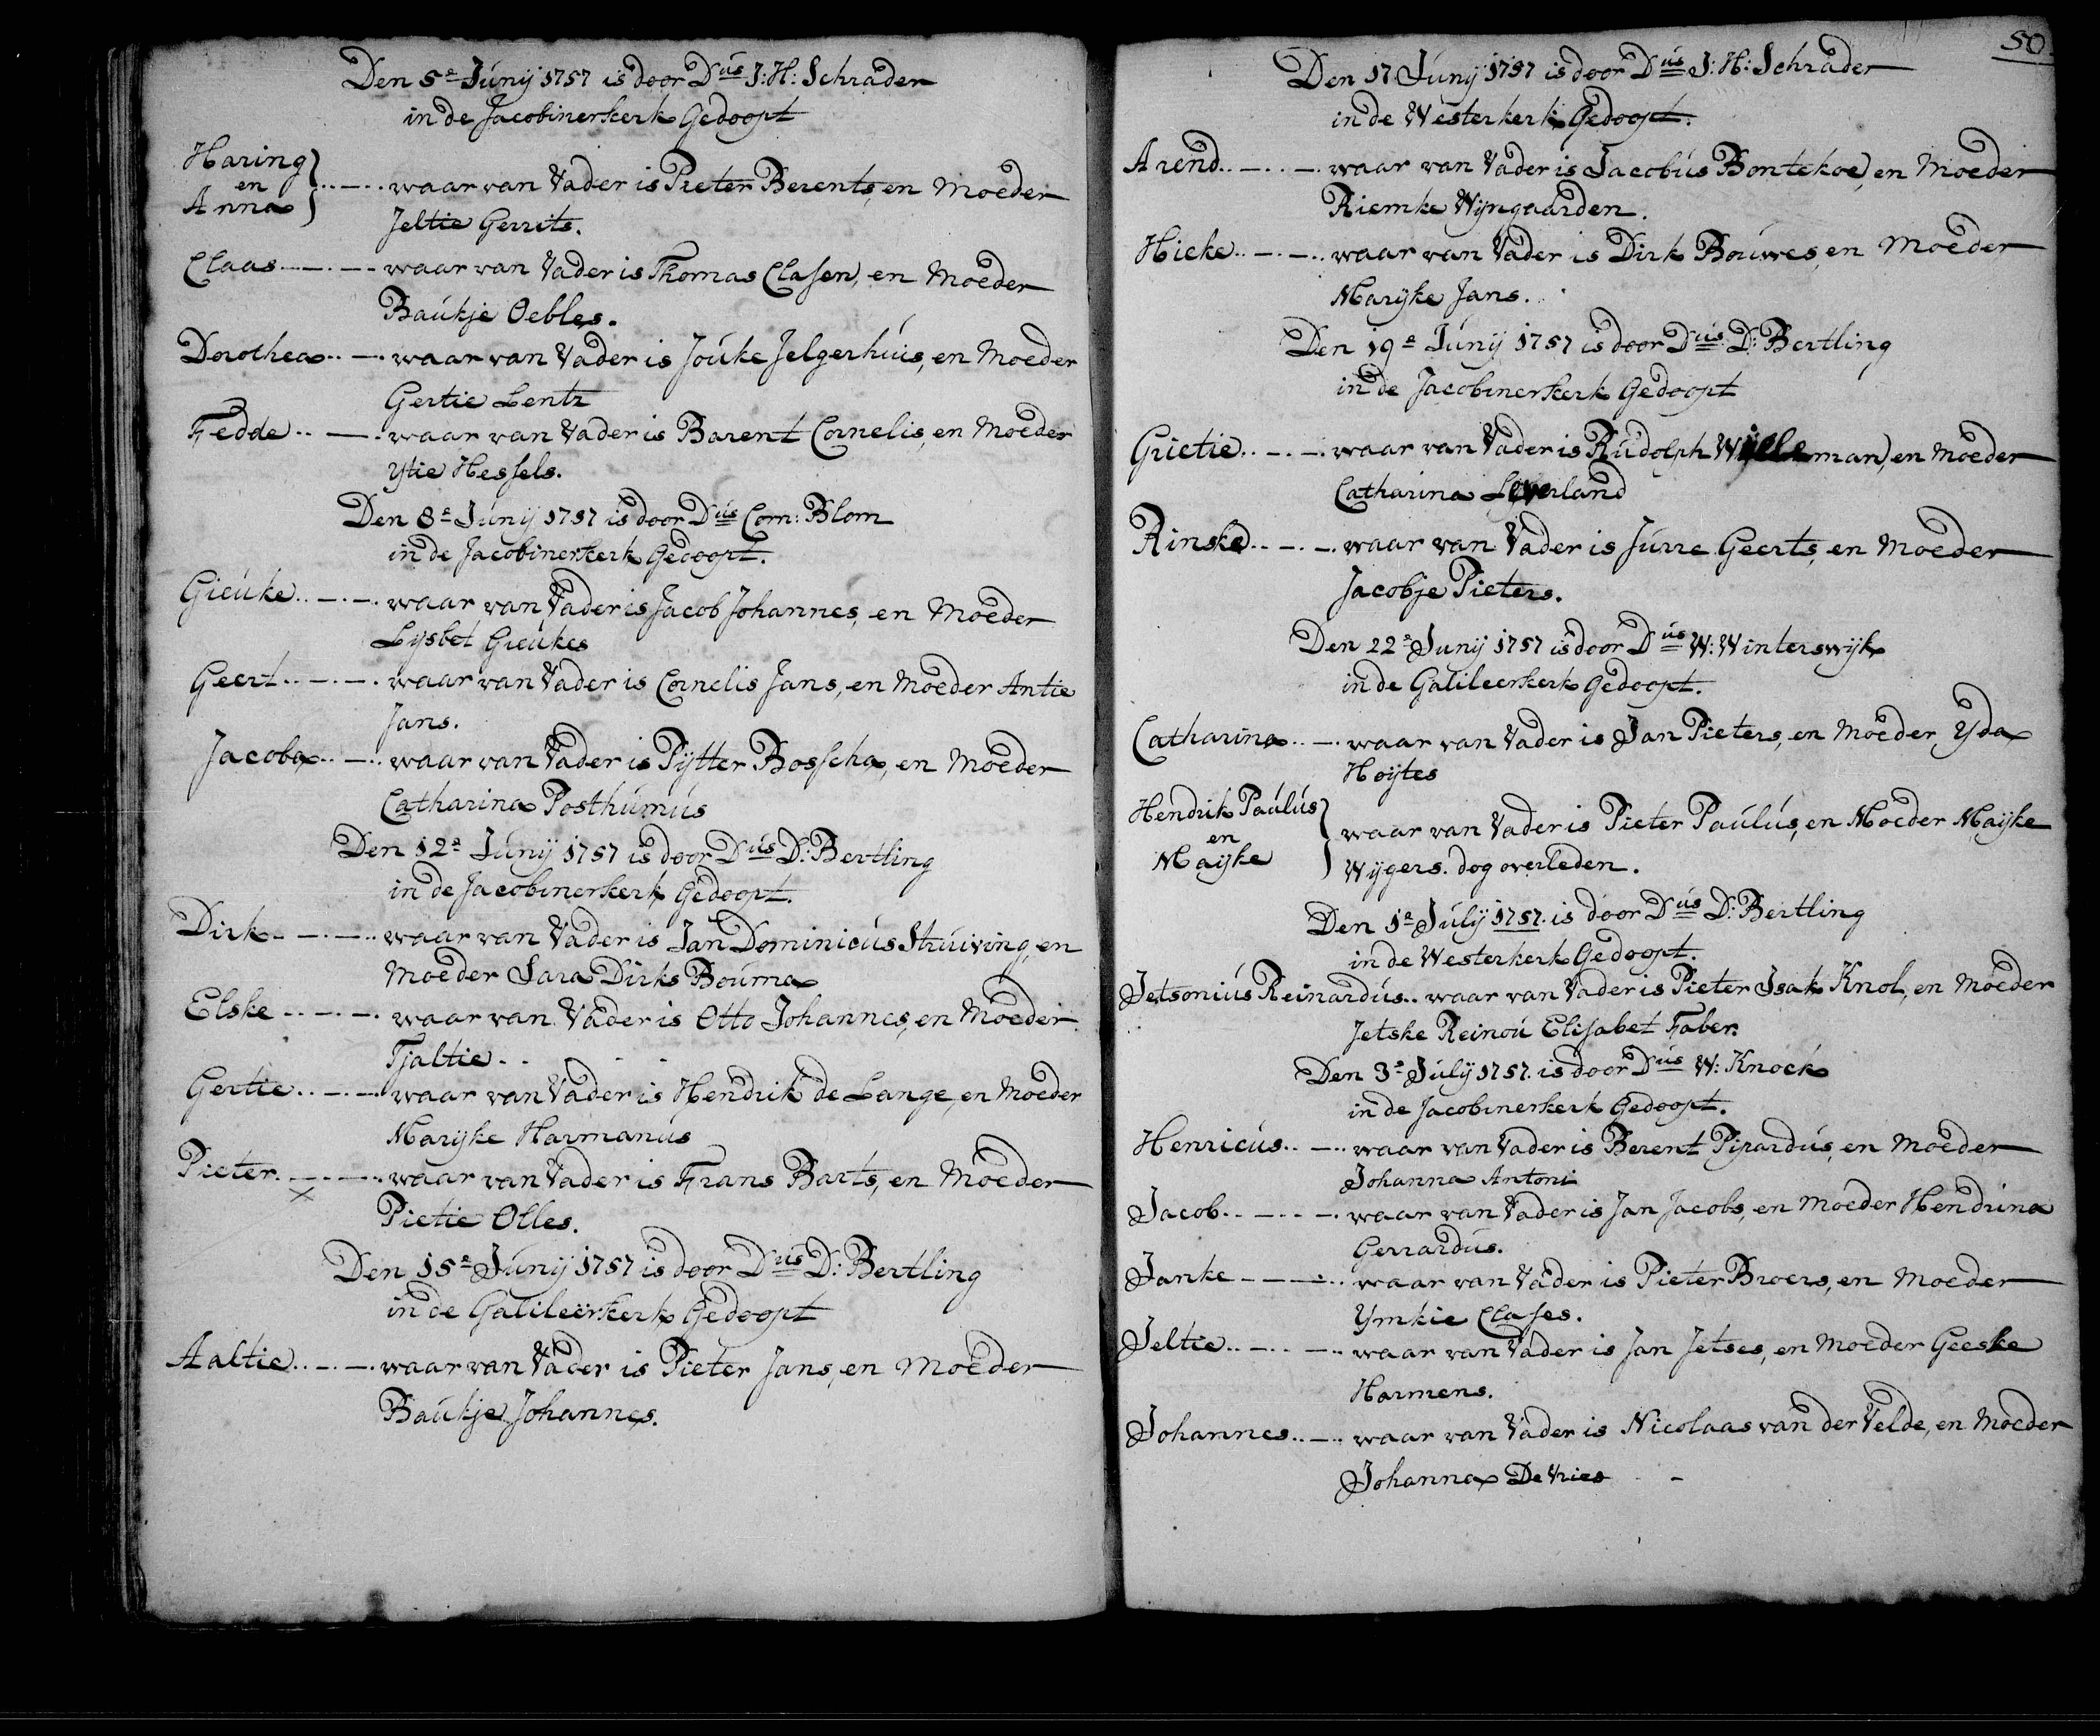 Den 5e Junij 1757 is door Dus J: H: Schrader
in de Jacobinerkerk Gedoopt
Haring
en
Anna
waar van Vader is Pieter Berents, en Moeder
Jeltie Gerrits.
Claas waar van Vader is Thomas Clasen, en Moeder
Baukje Oebles.
Dorothea waar van Vader is Jouke Jelgerhuis, en Moeder
Gertie Lentz
Fedde waar van Vader is Barent Cornelis, en Moeder
Ytie Hessels.
Den 8e Junij 1757 is door Dus Corn: Blom
in de Jacobinerkerk Gedoopt.
Gieuke waar van Vader is Jacob Johannes, en Moeder
Lysbet Gieukes
Geert waar van Vader is Cornelis Jans, en Moeder Antie
Jans.
Jacoba waar van Vader is Pijtter Bosscha, en Moeder
Catharina Posthumus
Den 12e Junij 1757 is door Dus D: Bertling
in de Jacobinerkerk Gedoopt.
Dirk waar van Vader is Jan Dominicus Struiving, en
Moeder Sara Dirks Bouma
Elske waar van Vader is Otto Johannes, en Moeder
Tjaltie
Gertie waar van Vader is Hendrik de Lange, en Moeder
Marijke Harmanus
Pieter waar van Vader is Frans Barts, en Moeder
x
Pietie Olles.
Den 15e Junij 1757 is door Dus D: Bertling
in de Galileërkerk Gedoopt
Aaltie waar van Vader is Pieter Jans, en Moeder
Baukje Johannes.
50
Den 17 Junij 1757 is door Dus J: H: Schrader
in de Westerkerk Gedoopt.
Arend waar van Vader is Jacobus Bontekoe, en Moeder
Riemke Wijngaarden.
Hieke waar van Vader is Dirk Bouwes, en Moeder
Marijke Jans.
Den 19e Junij 1757 is door Dus D: Bertling
in de Jacobinerkerk Gedoopt
Grietie waar van Vader is Rudolph Willeman, en Moeder
Catharina Leverland
Rinske waar van Vader is Jurre Geerts, en Moeder
Jacobje Pieters.
Den 22e Junij 1757 is door Dus W: Winterswijk
in de Galileerkerk Gedoopt.
Catharina waar van Vader is Jan Pieters, en Moeder Yda
Hoijtes
Hendrik Paulus
en
Maijke
waar van Vader is Pieter Paulus, en Moeder Maijke
Wijgers. dog overleden.
Den 1e Julij 1757 is door Dus D: Bertling
in de Westerkerk Gedoopt.
Jetsonius Reinardus waar van Vader is Pieter Isak Knol, en Moeder
Jetske Reinou Elisabet Faber.
Den 3e Julij 1757. is door Dus W: Knock
in de Jacobinerkerk Gedoopt.
Henricus waar van Vader is Berent Pijrardus, en Moeder
Johanna Antoni
Jacob waar van Vader is Jan Jacobs, en Moeder Hendrina
Gerrardus.
Janke waar van Vader is Pieter Broers, en Moeder
Ymkie Clases.
Jeltie waar van Vader is Jan Jetses, en Moeder Geeske
Harmens.
Johannes waar van Vader is Nicolaas van der Velde, en Moeder
Johanna De Vries